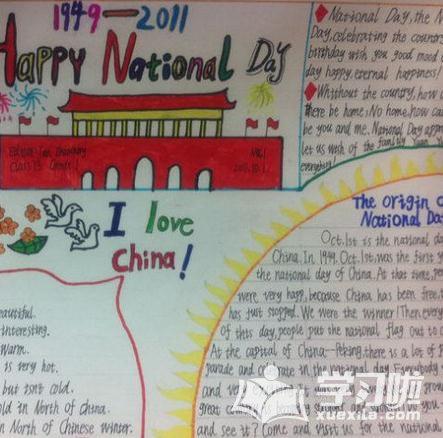 1949—2011
HAPPY National Day
Class 13 Grade 1
No.1
2011.10.1.
National Day, the
Day, celebrating the country
birthday wish you good mood
day happy, eternal happiness
Whithout the country, how
there be home; No home, how ca
be you and me. National Day
let us wish of the family
everything!
I love
China!
The origin o
National Da
Oct.1st is the national da
China. In 1949. Oct.1st, was the first
the national day of China. At that time,
were very happ, because China has been free
has just stopped. We were the winner! Then every
of this day, people put the national flag out to c
At the capital of China—Peking, there is a lot of
parade and celebrate in the
and
great
and see it? Come and visit us for the national
eautiful.
interesting.
warm.
is very hot.
but isn't cold.
old in North of China.
n North of Chinese winter.
学习啦